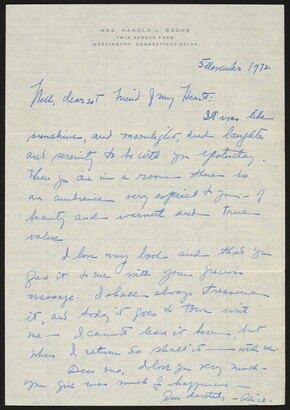 MRS. HAROLD L. BACHE
TWIN BROOKS FARM
WASHINGTON, CONNECTICUT 06793
5 November 1972
dearest friend of my Heart:
It was like
sunshine, and moonlight, and laughter
and serenity to be with you yesterday.
When you are in a room there is
an ambience very special to you – of
beauty and warmth and true
value.
I love my book and that you
gave it to me with your precious
message. I shall always treasure
it, and today it goes to town with
me – I cannot leave it here, but
when I return so shall it –
Dear one, I love you very much –
you give me much happiness –
devotedly – Alice.